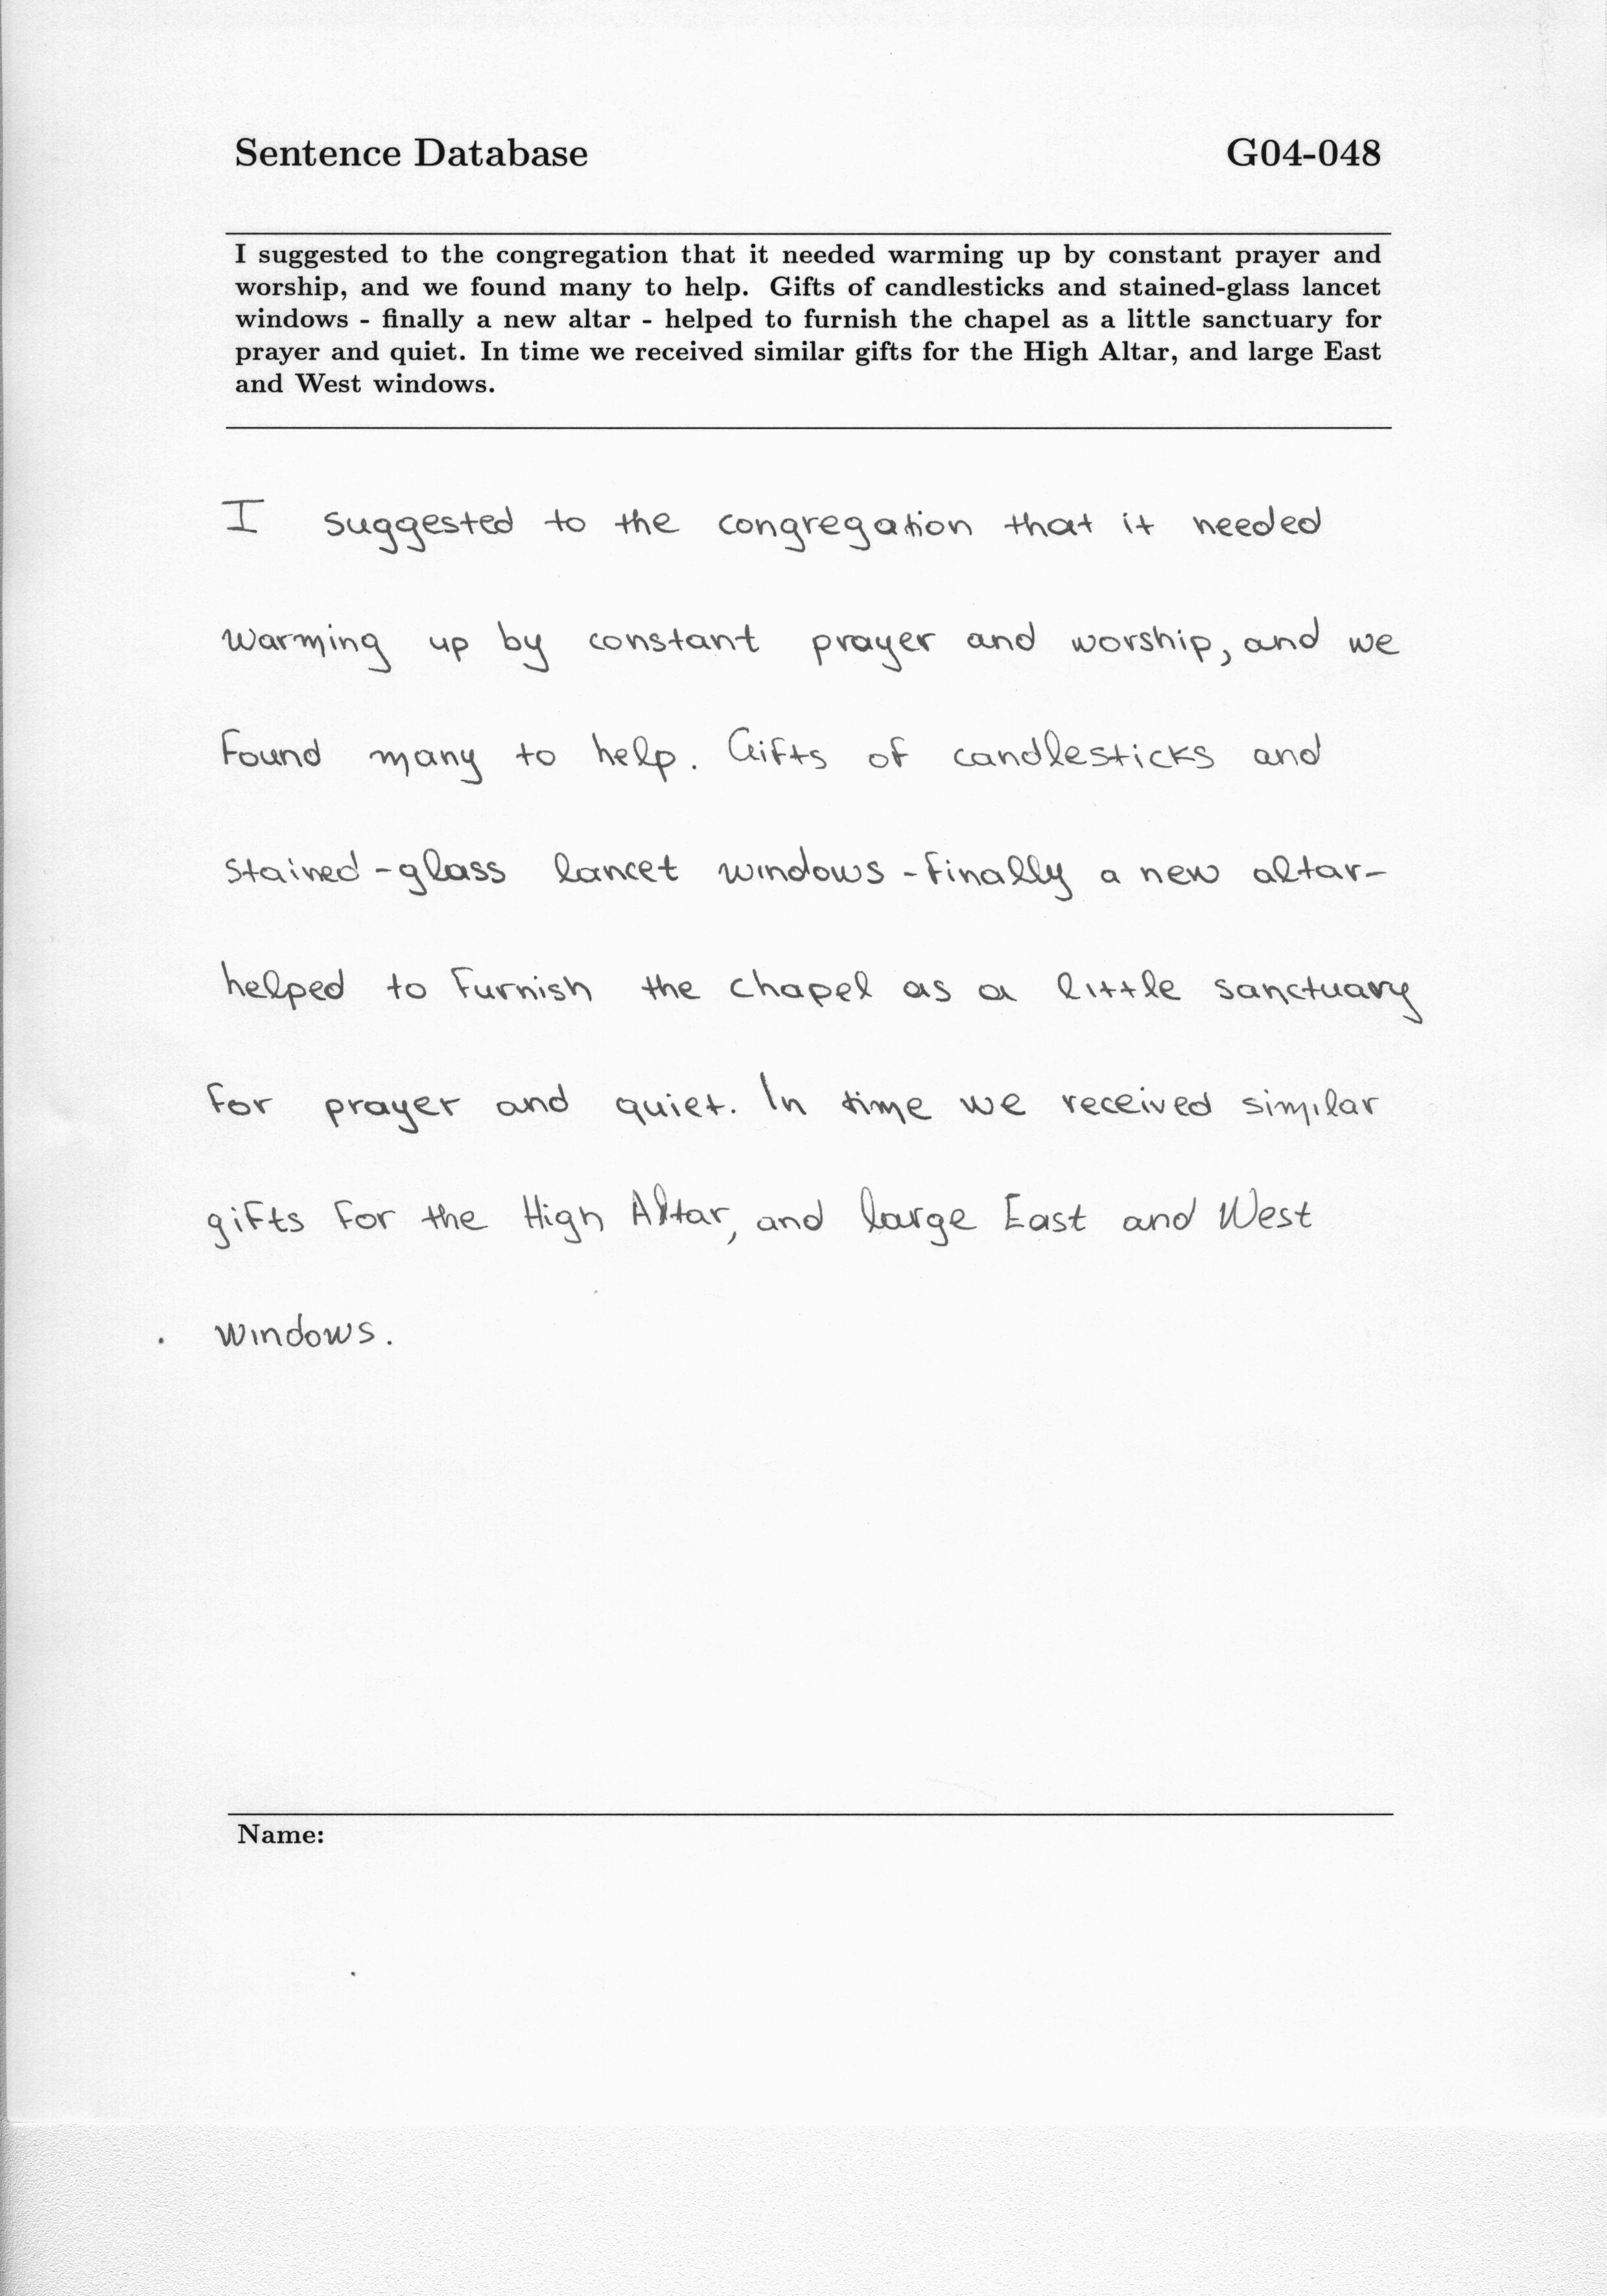 Sentence Database G04-048
I suggested to the congregation that it needed warming up by constant prayer and
worship, and we found many to help. Gifts of candlesticks and stained-glass lancet
windows - finally a new altar - helped to furnish the chapel as a little sanctuary for
prayer and quiet. In time we received similar gifts for the High Altar, and large East
and West windows.
I suggested to the congregation that it needed
warming up by constant prayer and worship, and we
found many to help. Gifts of candlesticks and
stained-glass lancet windows - finally a new altar -
helped to furnish the chapel as a little sanctuary
for prayer and quiet. In time we received similar
gifts for the High Altar, and large East and West
windows.
Name: